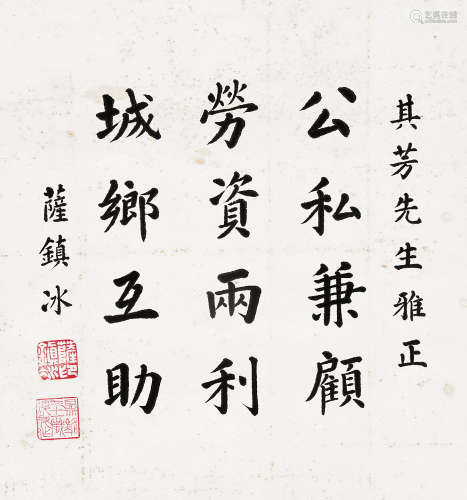 其芳先生雅正
公私兼顧
勞資兩利
城鄉互助
薩鎮冰